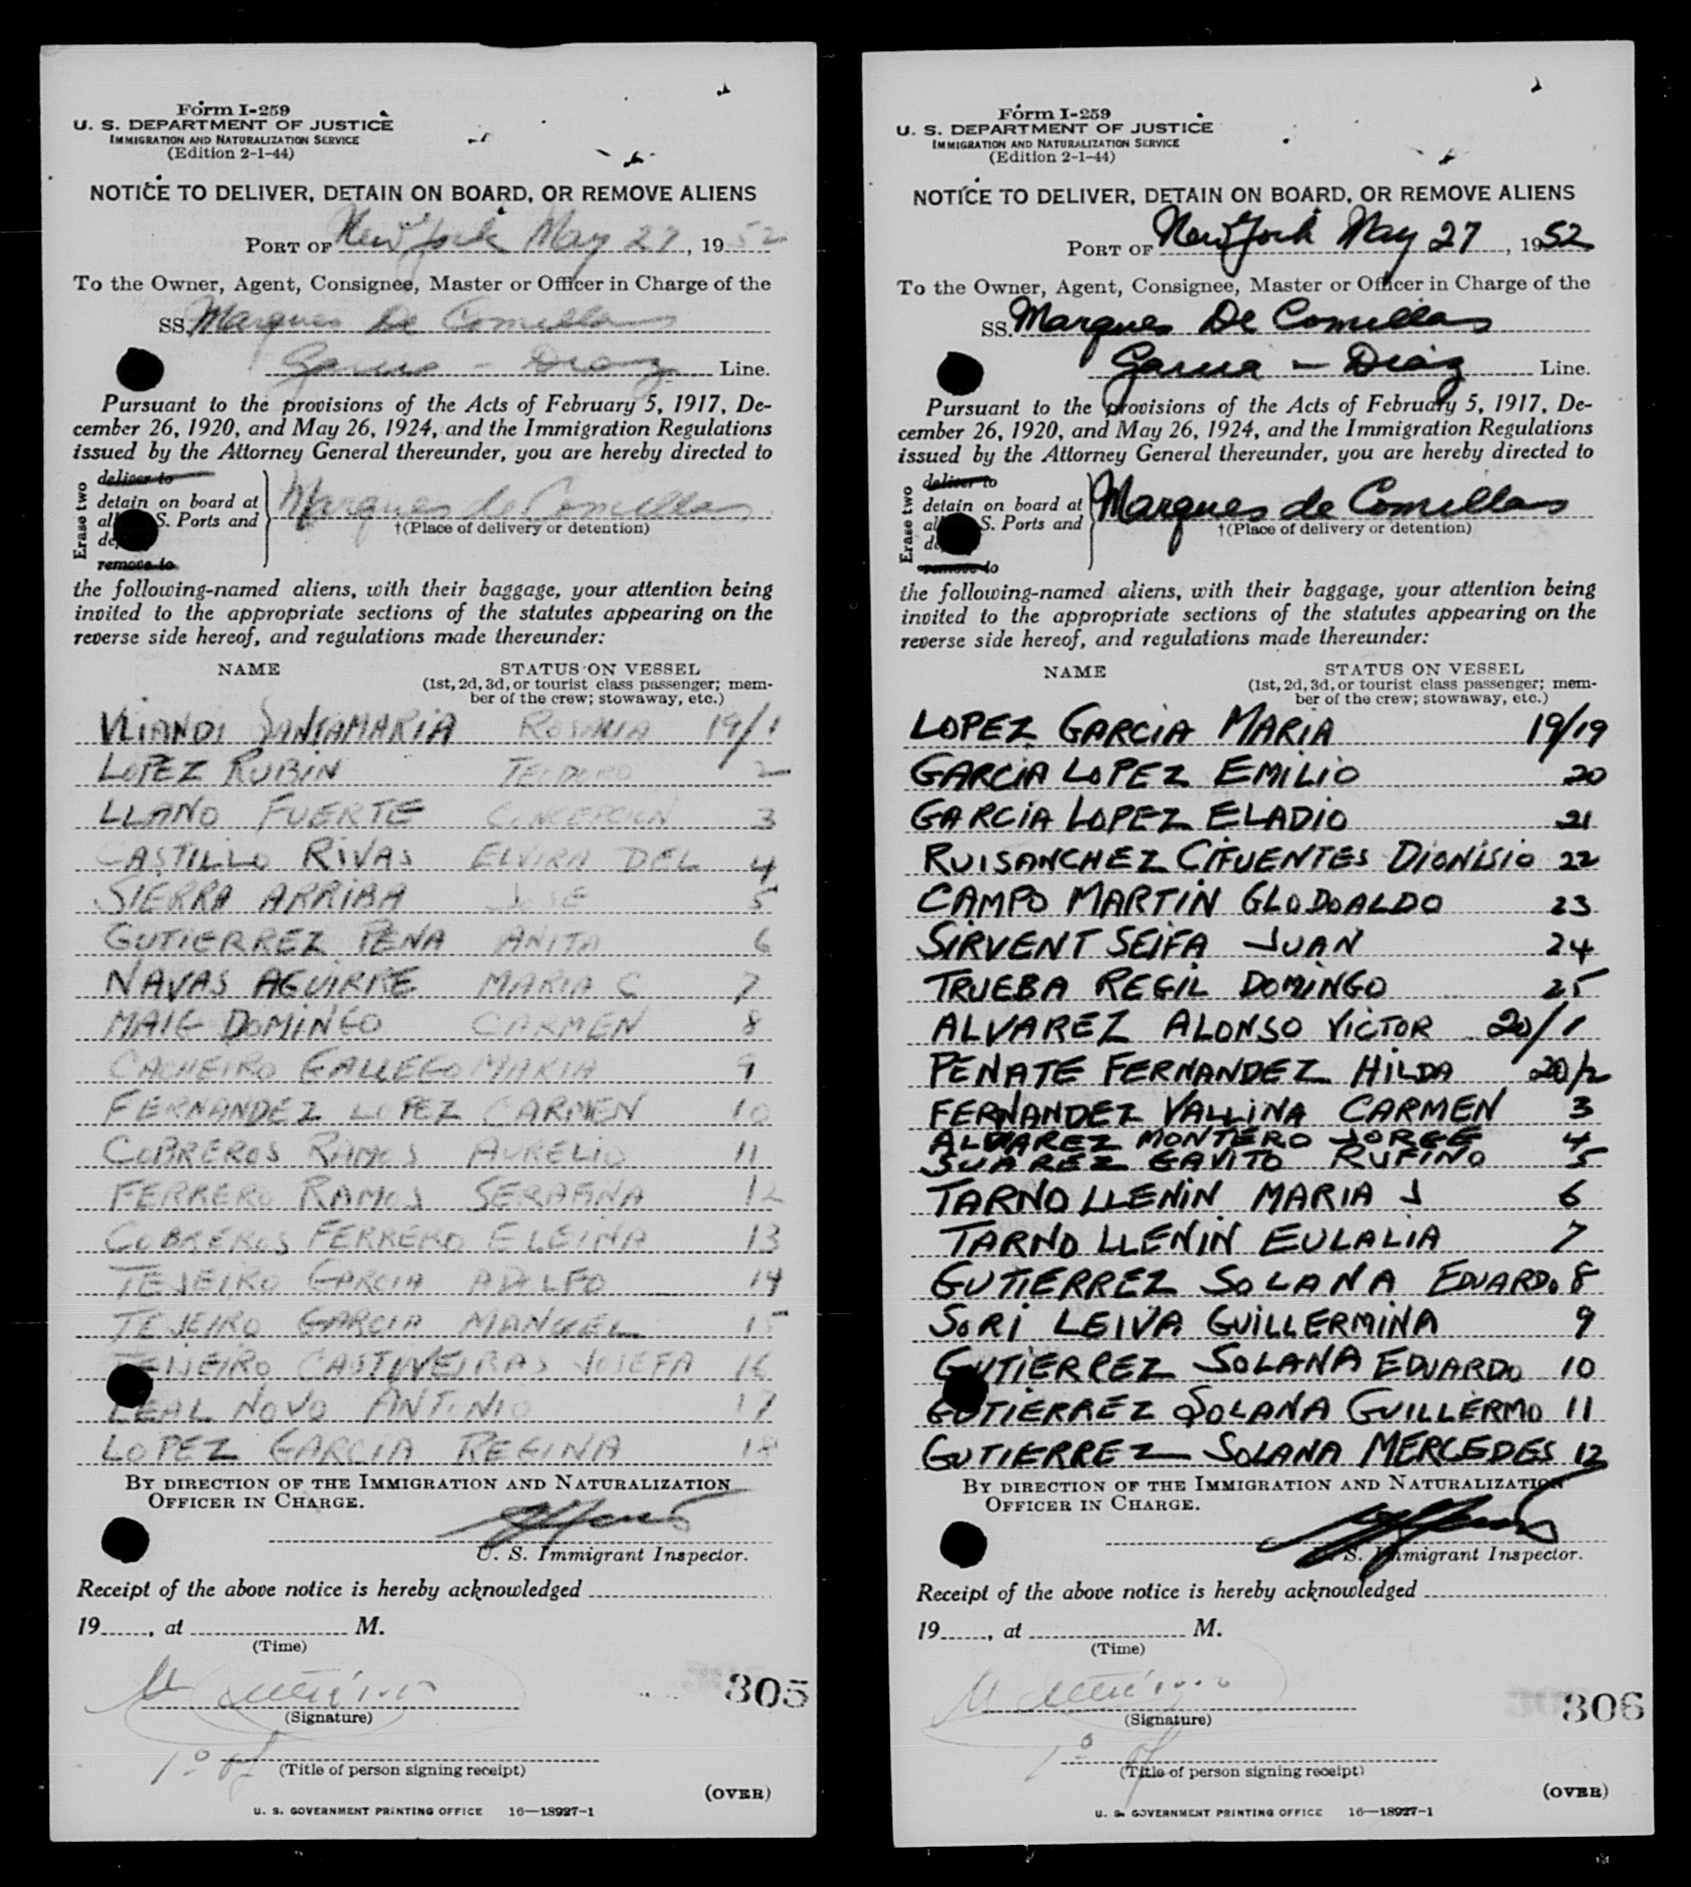 Form I-259
U. S. DEPARTMENT OF JUSTICE
IMMIGRATION AND NATURALIZATION SERVICE
(Edition 2-1-44)
NOTICE TO DELIVER, DETAIN ON BOARD, OR REMOVE ALIENS
PORT OF New York May 27, 1952
To the Owner, Agent, Consignee, Master or Officer in Charge of the
SS. Marques De Comillas
Garcia - Diaz Line.
Pursuant to the provisions of the Acts of February 5, 1917, De-
cember 26, 1920, and May 26, 1924, and the Immigration Regulations
issued by the Attorney General thereunder, you are hereby directed to
Erase two
deliver to
detain on board at
al S. Ports and
de
remove to
Marques de Comillas
†(Place of delivery or detention)
the following-named aliens, with their baggage, your attention being
invited to the appropriate sections of the statutes appearing on the
reverse side hereof, and regulations made thereunder:
NAME STATUS ON VESSEL
(1st, 2d, 3d, or tourist class passenger; mem-
ber of the crew; stowaway, etc.)
SANTAMARIA ROSALIA 19/1
LOPEZ RUBIN TEODORO 2
LLANO FUERTE CONCEPCION 3
CASTILLO RIVAS ELVIRA DEL 4
SIERRA ARRIBA JOSE 5
GUTIERREZ PENA ANITA 6
NAVAS AGUIRRE MARIA C 7
MAIG DOMINGO CARMEN 8
CACHEIRO GALLEGO MARIA 9
FERNANDEZ LOPEZ CARMEN 10
COBREROS RAMOS AURELIO 11
FERRERO RAMOS SERAFINA 12
COBREROS FERRERO ELEINA 13
TEJEIRO GARCIA ADOLFO 14
TEJEIRO GARCIA MANUEL 15
TEIJEIRO CASTIÑEIRAS JOSEFA 16
LEAL NOVO ANTONIO 17
LOPEZ GARCIA REGINA 18
BY DIRECTION OF THE IMMIGRATION AND NATURALIZATION
OFFICER IN CHARGE.
U. S. Immigrant Inspector.
Receipt of the above notice is hereby acknowledged
19......, at M.
(Time)
(Signature)
305
1º of
(Title of person signing receipt)
(OVER)
U. S. GOVERNMENT PRINTING OFFICE 16—18927-1
Form I-259
U. S. DEPARTMENT OF JUSTICE
IMMIGRATION AND NATURALIZATION SERVICE
(Edition 2-1-44)
NOTICE TO DELIVER, DETAIN ON BOARD, OR REMOVE ALIENS
PORT OF New York May 27, 1952
To the Owner, Agent, Consignee, Master or Officer in Charge of the
SS. Marques De Comillas
Garcia - Diaz Line.
Pursuant to the provisions of the Acts of February 5, 1917, De-
cember 26, 1920, and May 26, 1924, and the Immigration Regulations
issued by the Attorney General thereunder, you are hereby directed to
Erase two
deliver to
detain on board at
al S. Ports and
de
remove to
Marques de Comillas
†(Place of delivery or detention)
the following-named aliens, with their baggage, your attention being
invited to the appropriate sections of the statutes appearing on the
reverse side hereof, and regulations made thereunder:
NAME STATUS ON VESSEL
(1st, 2d, 3d, or tourist class passenger; mem-
ber of the crew; stowaway, etc.)
LOPEZ GARCIA MARIA 19/19
GARCIA LOPEZ EMILIO 20
GARCIA LOPEZ ELADIO 21
RUISANCHEZ CIFUENTES DIONISIO 22
CAMPO MARTIN GLODOALDO 23
SIRVENT SEIFA JUAN 24
TRUEBA REGIL DOMINGO 25
ALVAREZ ALONSO VICTOR 20/1
PENATE FERNANDEZ HILDA 20/2
FERNANDEZ VALLINA CARMEN 3
ALVAREZ MONTERO JORGE 4
SUAREZ GAVITO RUFINO 5
TARNO LLENIN MARIA J 6
TARNO LLENIN EULALIA 7
GUTIERREZ SOLANA EDUARDO 8
SORI LEIVA GUILLERMINA 9
GUTIERREZ SOLANA EDUARDO 10
GUTIERREZ SOLANA GUILLERMO 11
GUTIERREZ SOLANA MERCEDES 12
BY DIRECTION OF THE IMMIGRATION AND NATURALIZATION
OFFICER IN CHARGE.
S. Immigrant Inspector.
Receipt of the above notice is hereby acknowledged
19......, at M.
(Time)
(Signature)
306
1º of
(Title of person signing receipt)
(OVER)
U. S. GOVERNMENT PRINTING OFFICE 16—18927-1